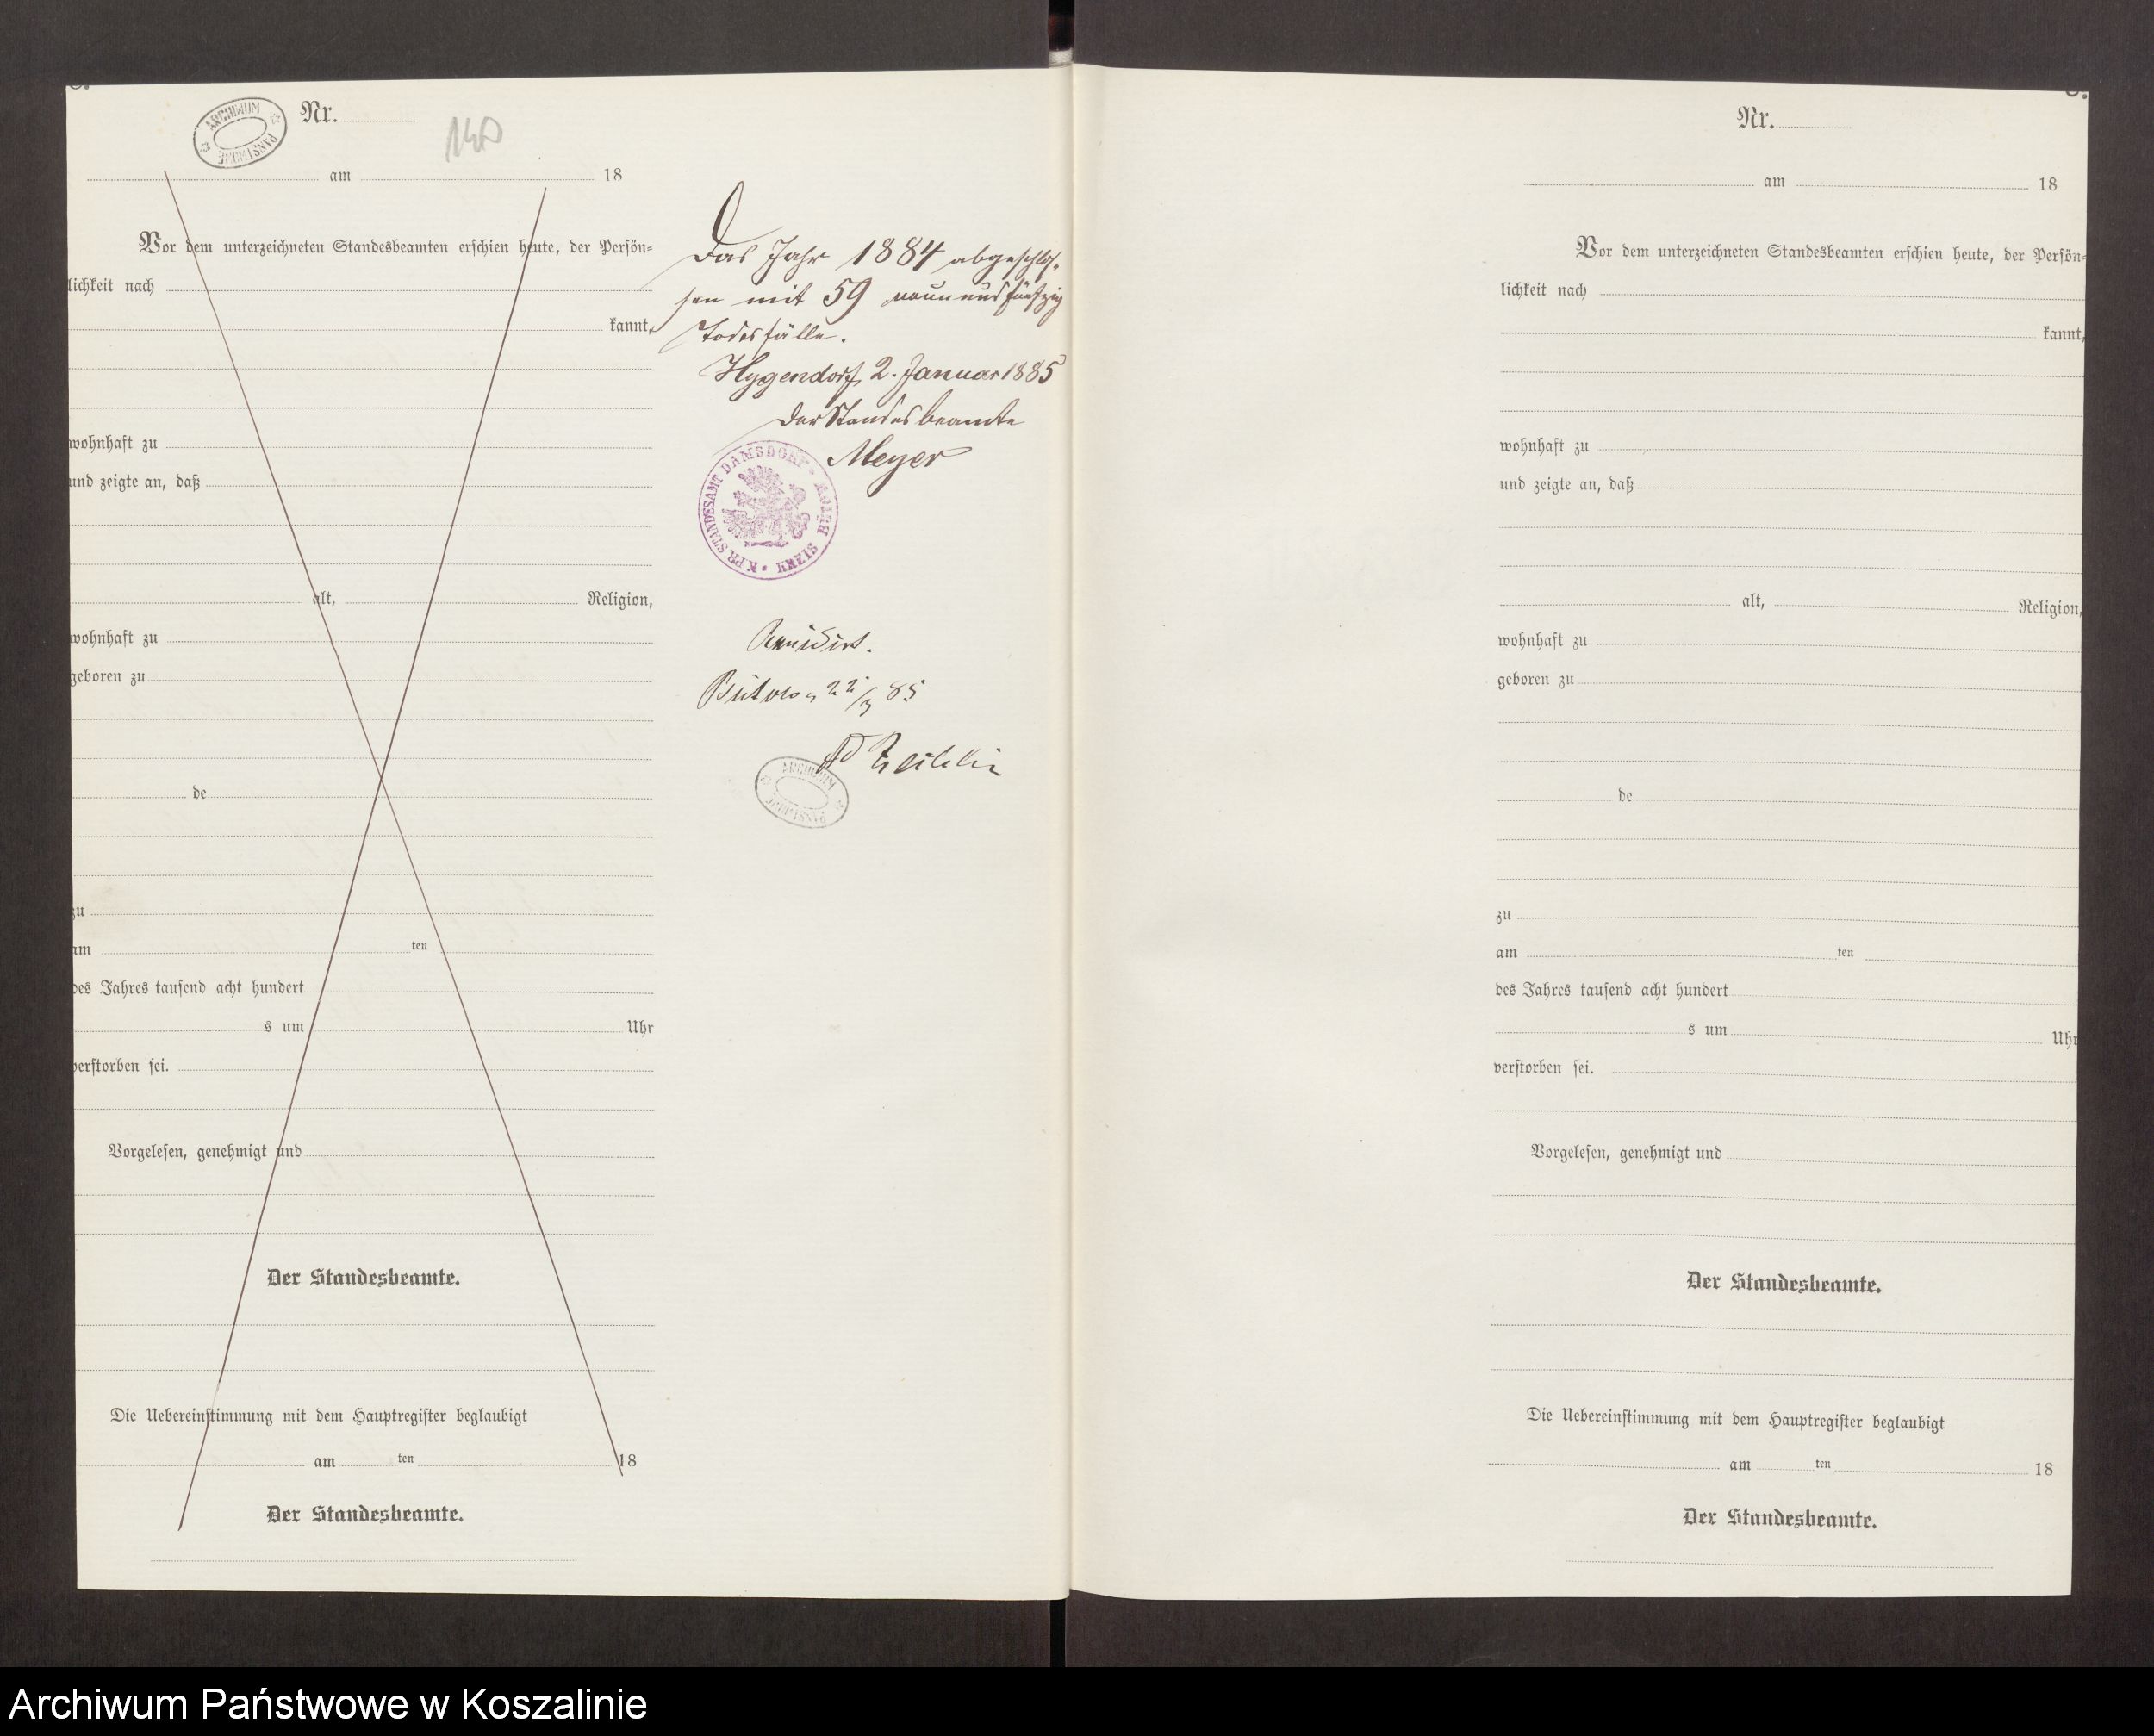 ARCHIWUM PAŃSTWOWE
Nr.
140
am 18
Vor dem unterzeichneten Standesbeamten erschien heute, der Persön=
lichkeit nach
kannt,
wohnhaft zu
und zeigte an, daß
alt, Religion,
wohnhaft zu
geboren zu
de
zu
am ten
des Jahres tausend acht hundert
s um Uhr
verstorben sei.
Vorgelesen, genehmigt und
Der Standesbeamte.
Die Uebereinstimmung mit dem Hauptregister beglaubigt
am ten 18
Der Standesbeamte.
Das Jahr 1884 abgeschlos-
sen mit 59 neunundfünfzig
Todesfälle.
Hygendorf, 2. Januar 1885
Der Standesbeamte
Meyer
K.PR. STANDESAMT DAMSDORF • KREIS BÜTOW •
Revidirt.
Bütow, 22/3 85
ARCHIWUM PAŃSTWOWE
Nr.
am 18
Vor dem unterzeichneten Standesbeamten erschien heute, der Persön=
lichkeit nach
kannt,
wohnhaft zu
und zeigte an, daß
alt, Religion,
wohnhaft zu
geboren zu
de
zu
am ten
des Jahres tausend acht hundert
s um Uhr
verstorben sei.
Vorgelesen, genehmigt und
Der Standesbeamte.
Die Uebereinstimmung mit dem Hauptregister beglaubigt
am ten 18
Der Standesbeamte.
Archiwum Państwowe w Koszalinie